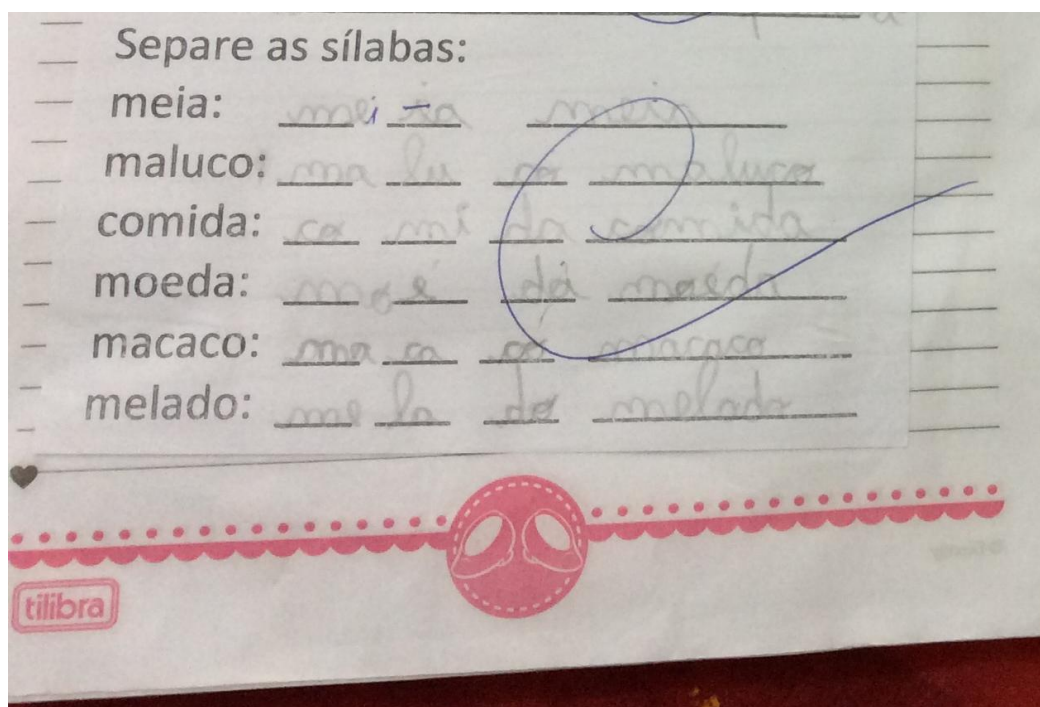 Separe as sílabas:
meia: mei ia meia
maluco: ma lu co maluco
comida: co mi da comida
moeda: mo e da moeda
macaco: ma ca co macaco
melado: me la do melado
tilibra